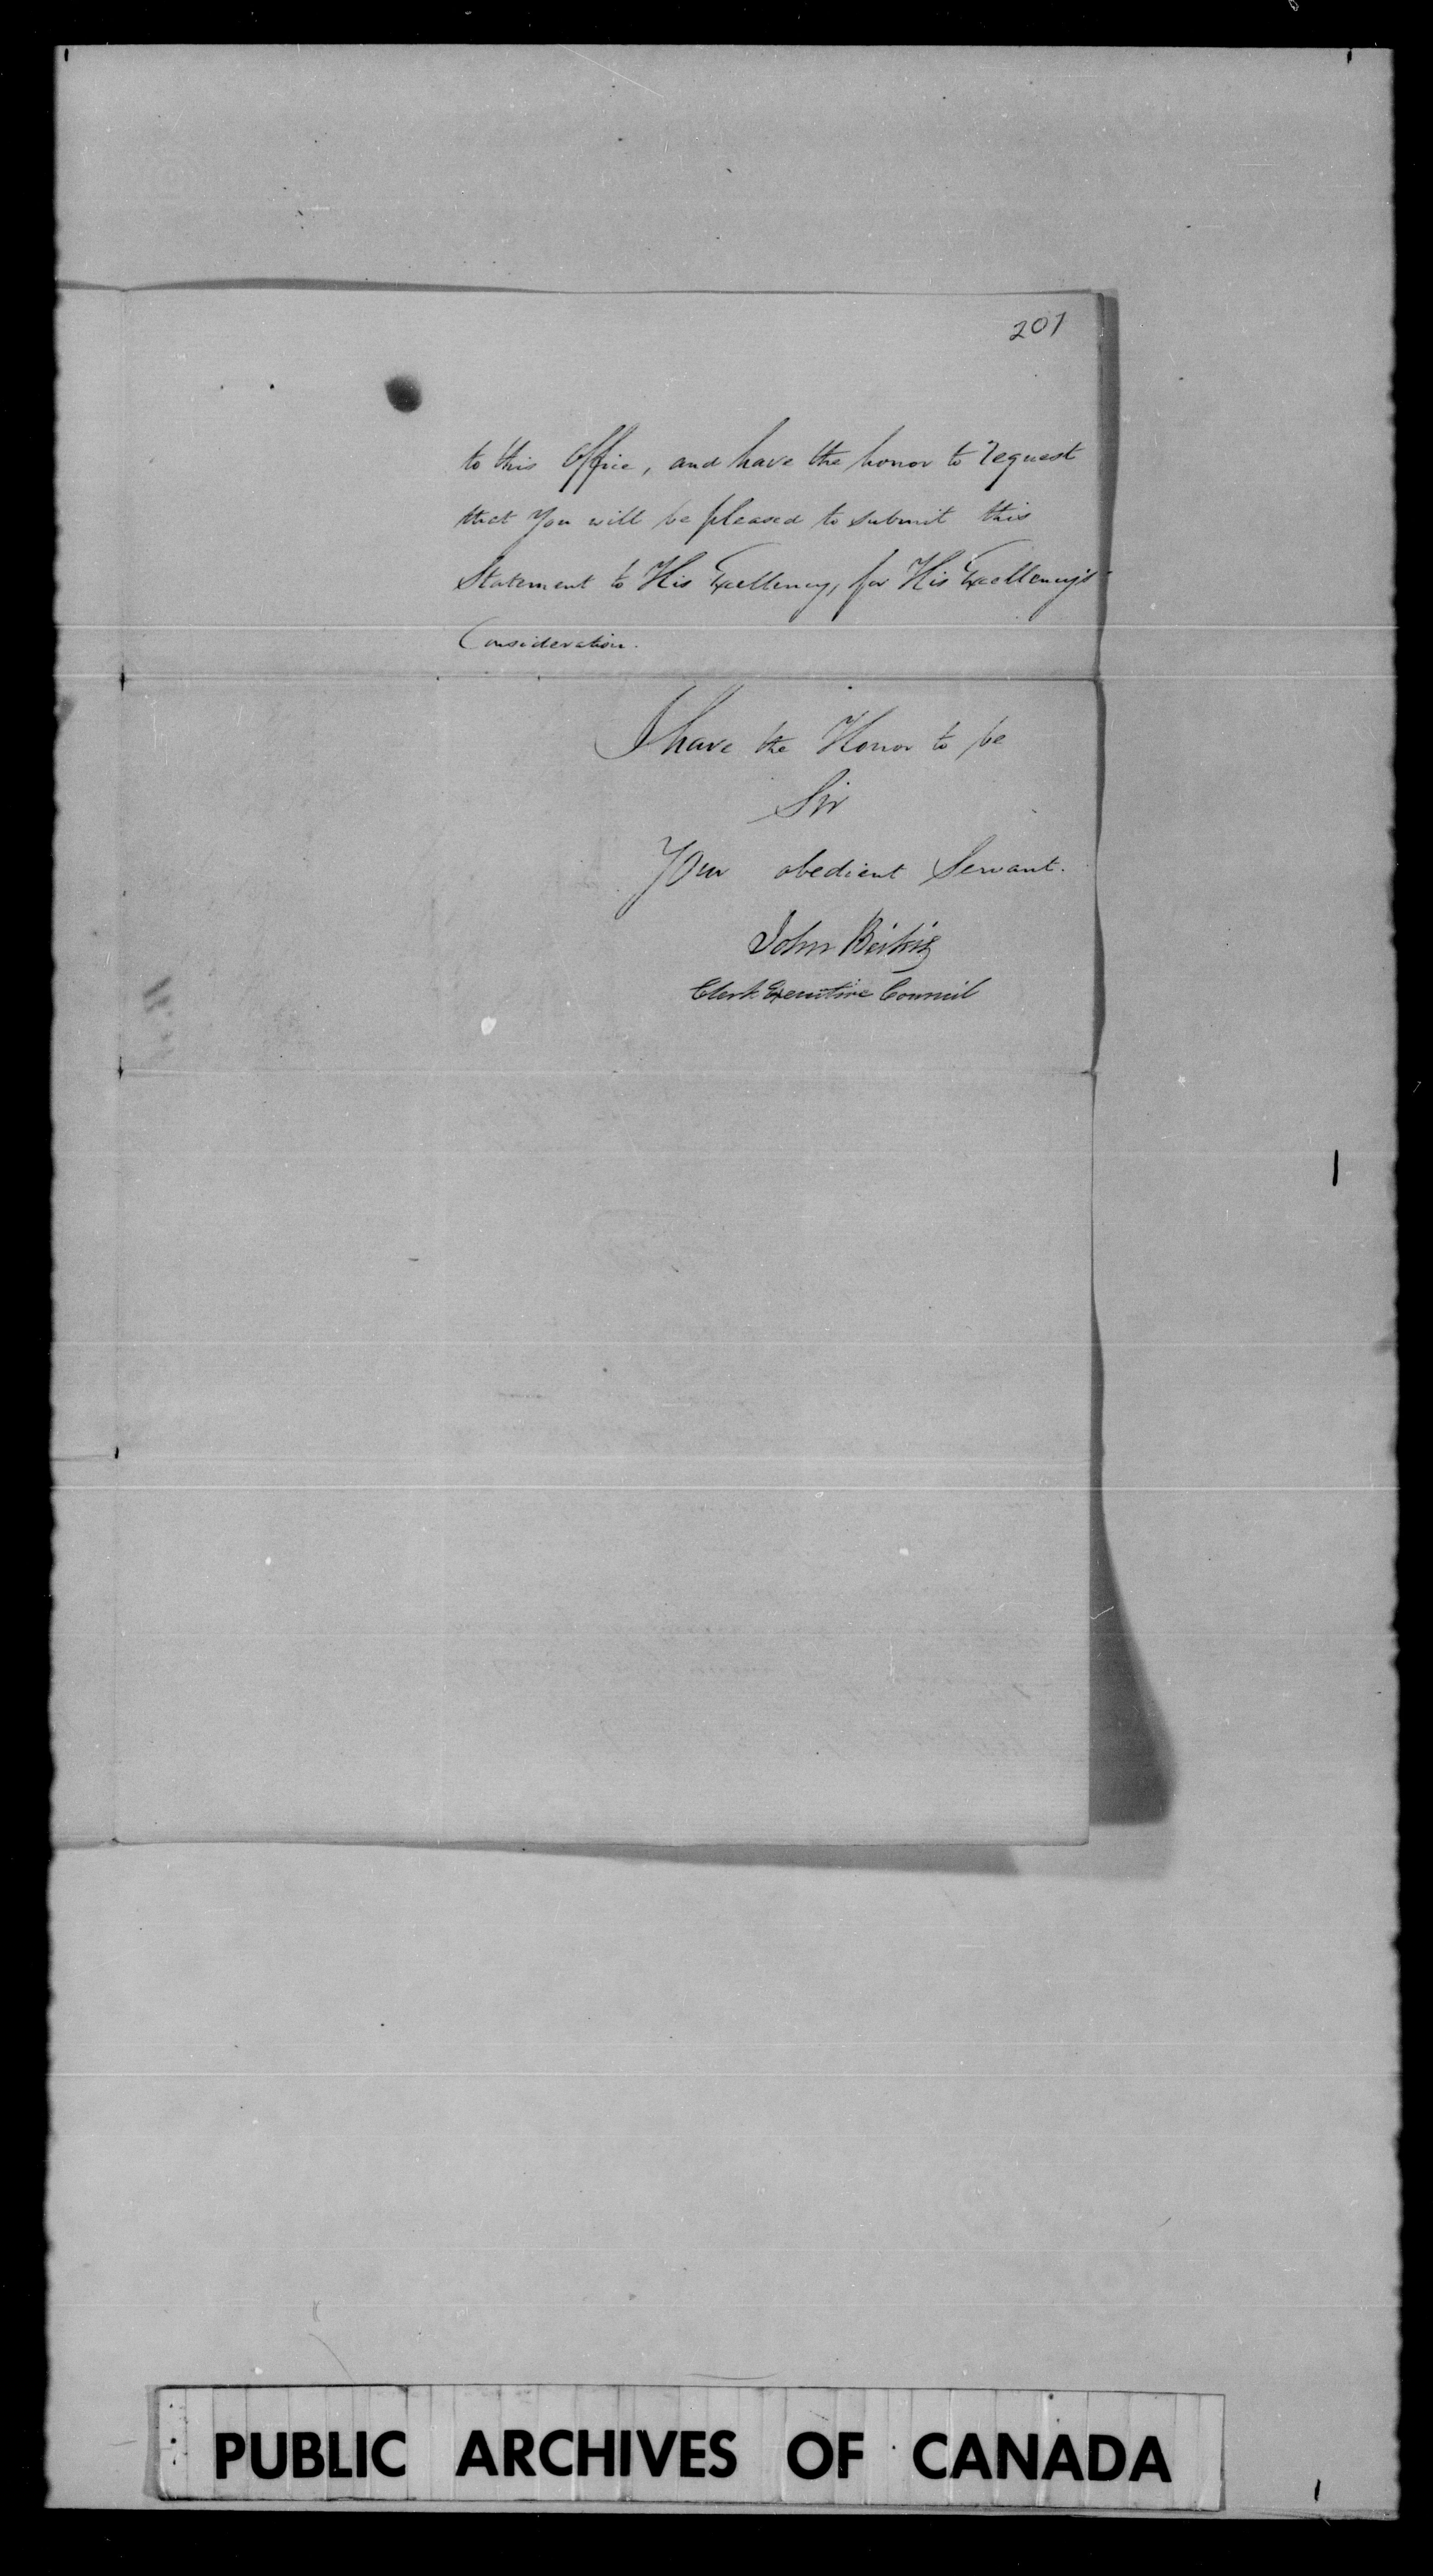 201
to this Office, and have the honor to request
that You will be pleased to submit this
Statement to His Excellency, for His Excellency's
Consideration.
I have the Honor to be
Sir
Your obedient Servant.
John Beikie
Clerk Executive Council
PUBLIC ARCHIVES OF CANADA